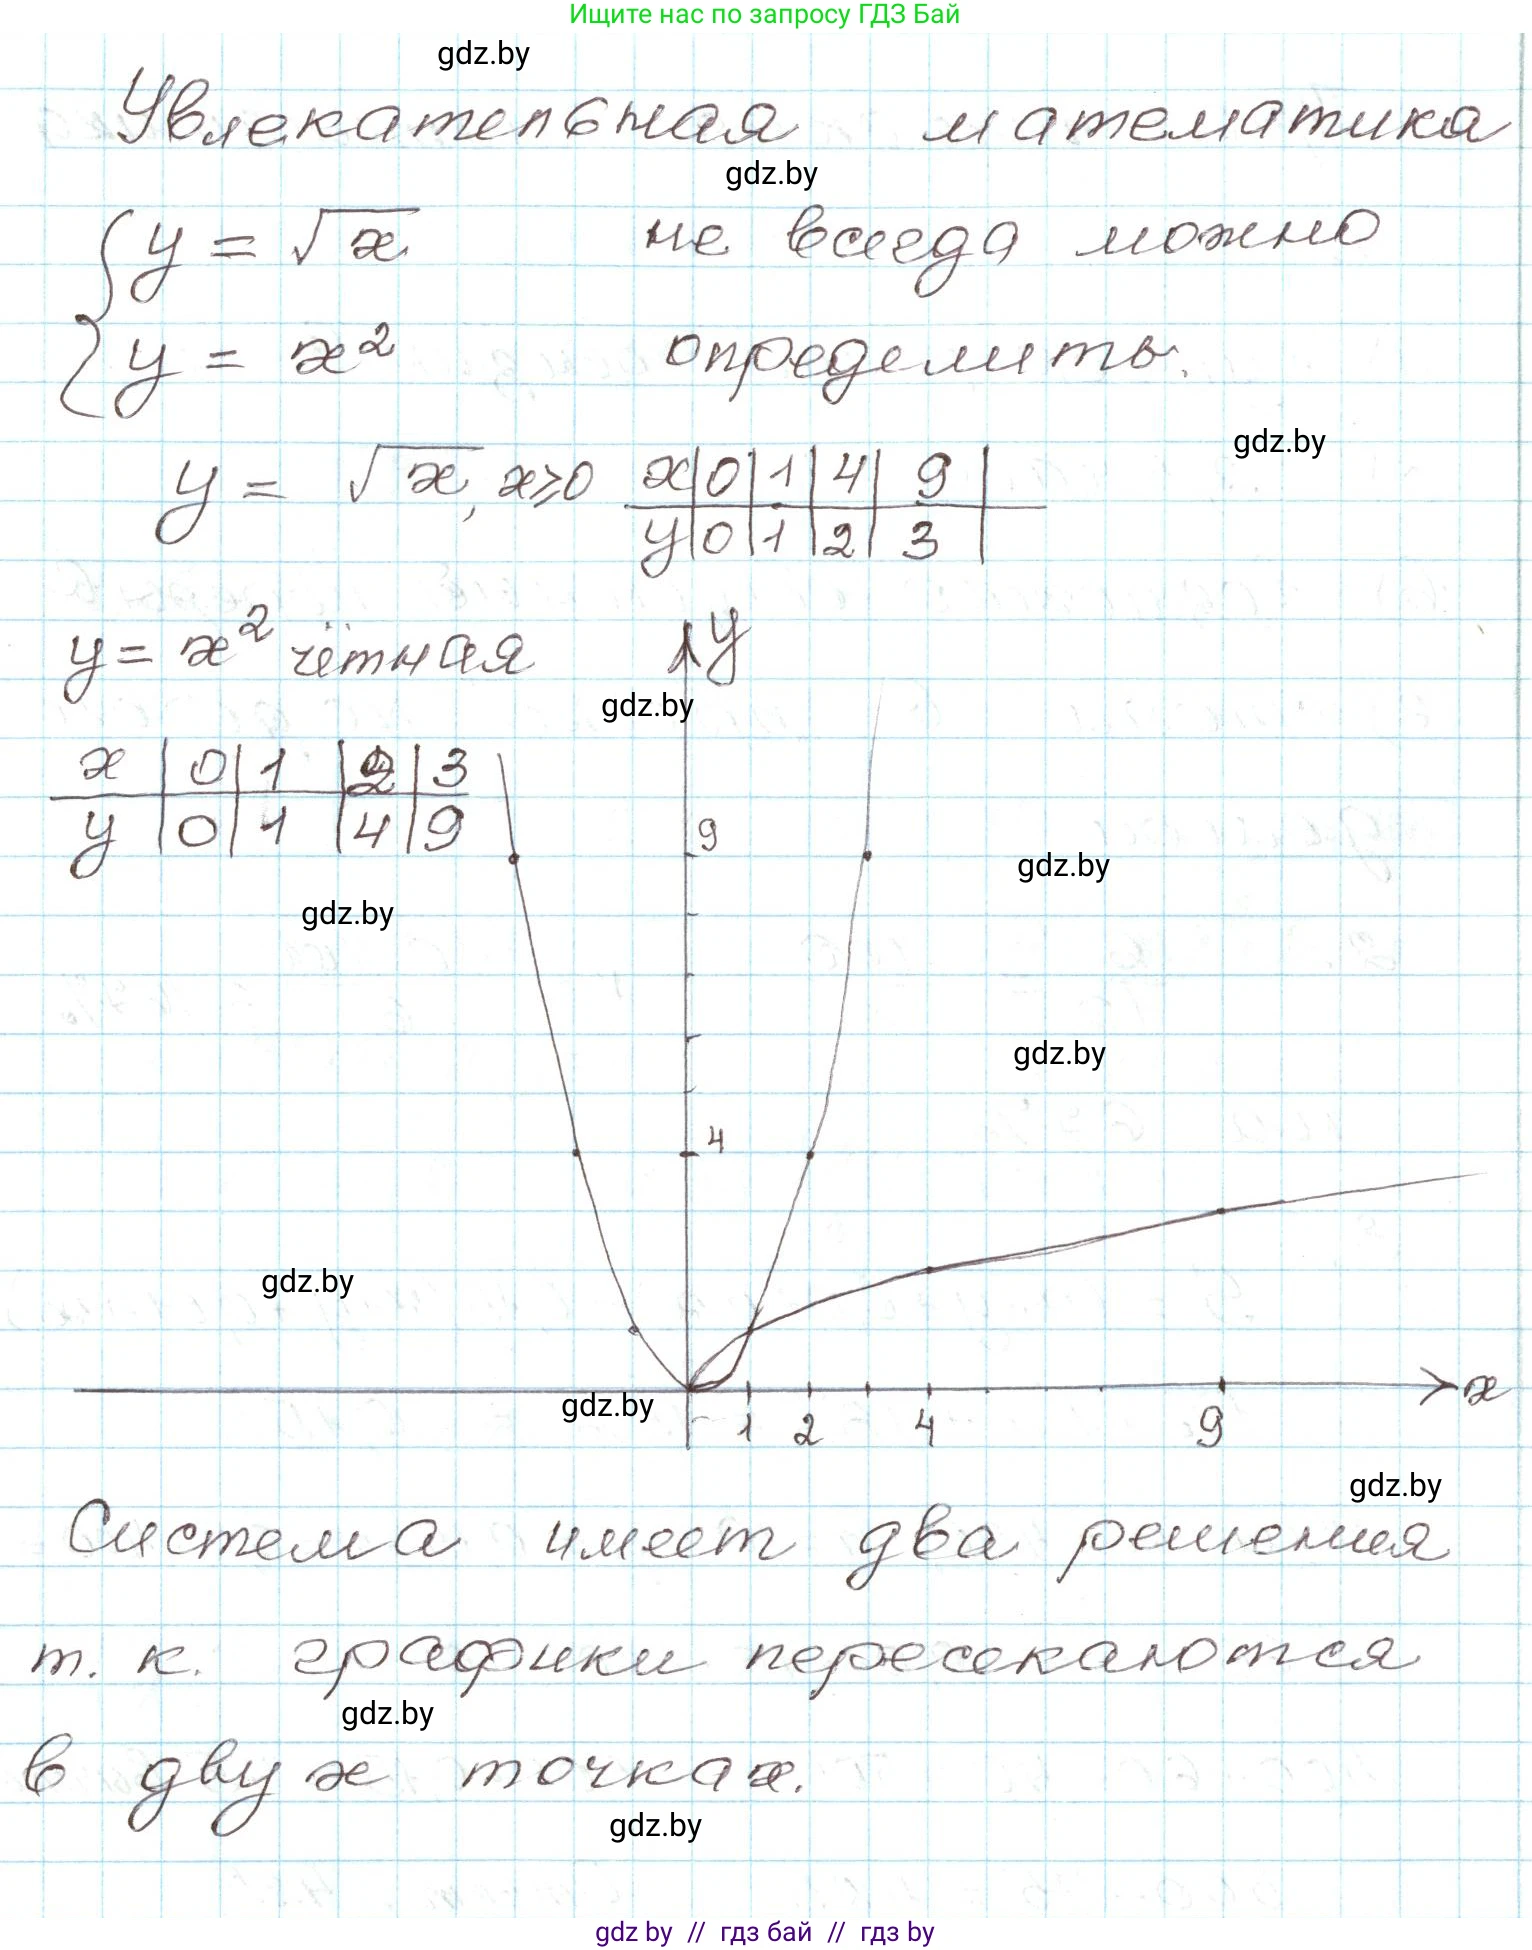 Ищите нас по запросу ГДЗ Бай
gdz.by
Увлекательная математика
gdz.by
{ y = √x не всегда можно
y = x² определить.
gdz.by
y = √x, x ≥ 0
x | 0 | 1 | 4 | 9 |
y | 0 | 1 | 2 | 3 |
y = x² чётная
y
gdz.by
x | 0 | 1 | 2 | 3
y | 0 | 1 | 4 | 9
9
gdz.by
gdz.by
gdz.by
4
gdz.by
gdz.by
1 2 4 9 x
gdz.by
Система имеет два решения
т. к. графики пересекаются
gdz.by
в двух точках.
gdz.by
gdz by // гдз бай // гдз by